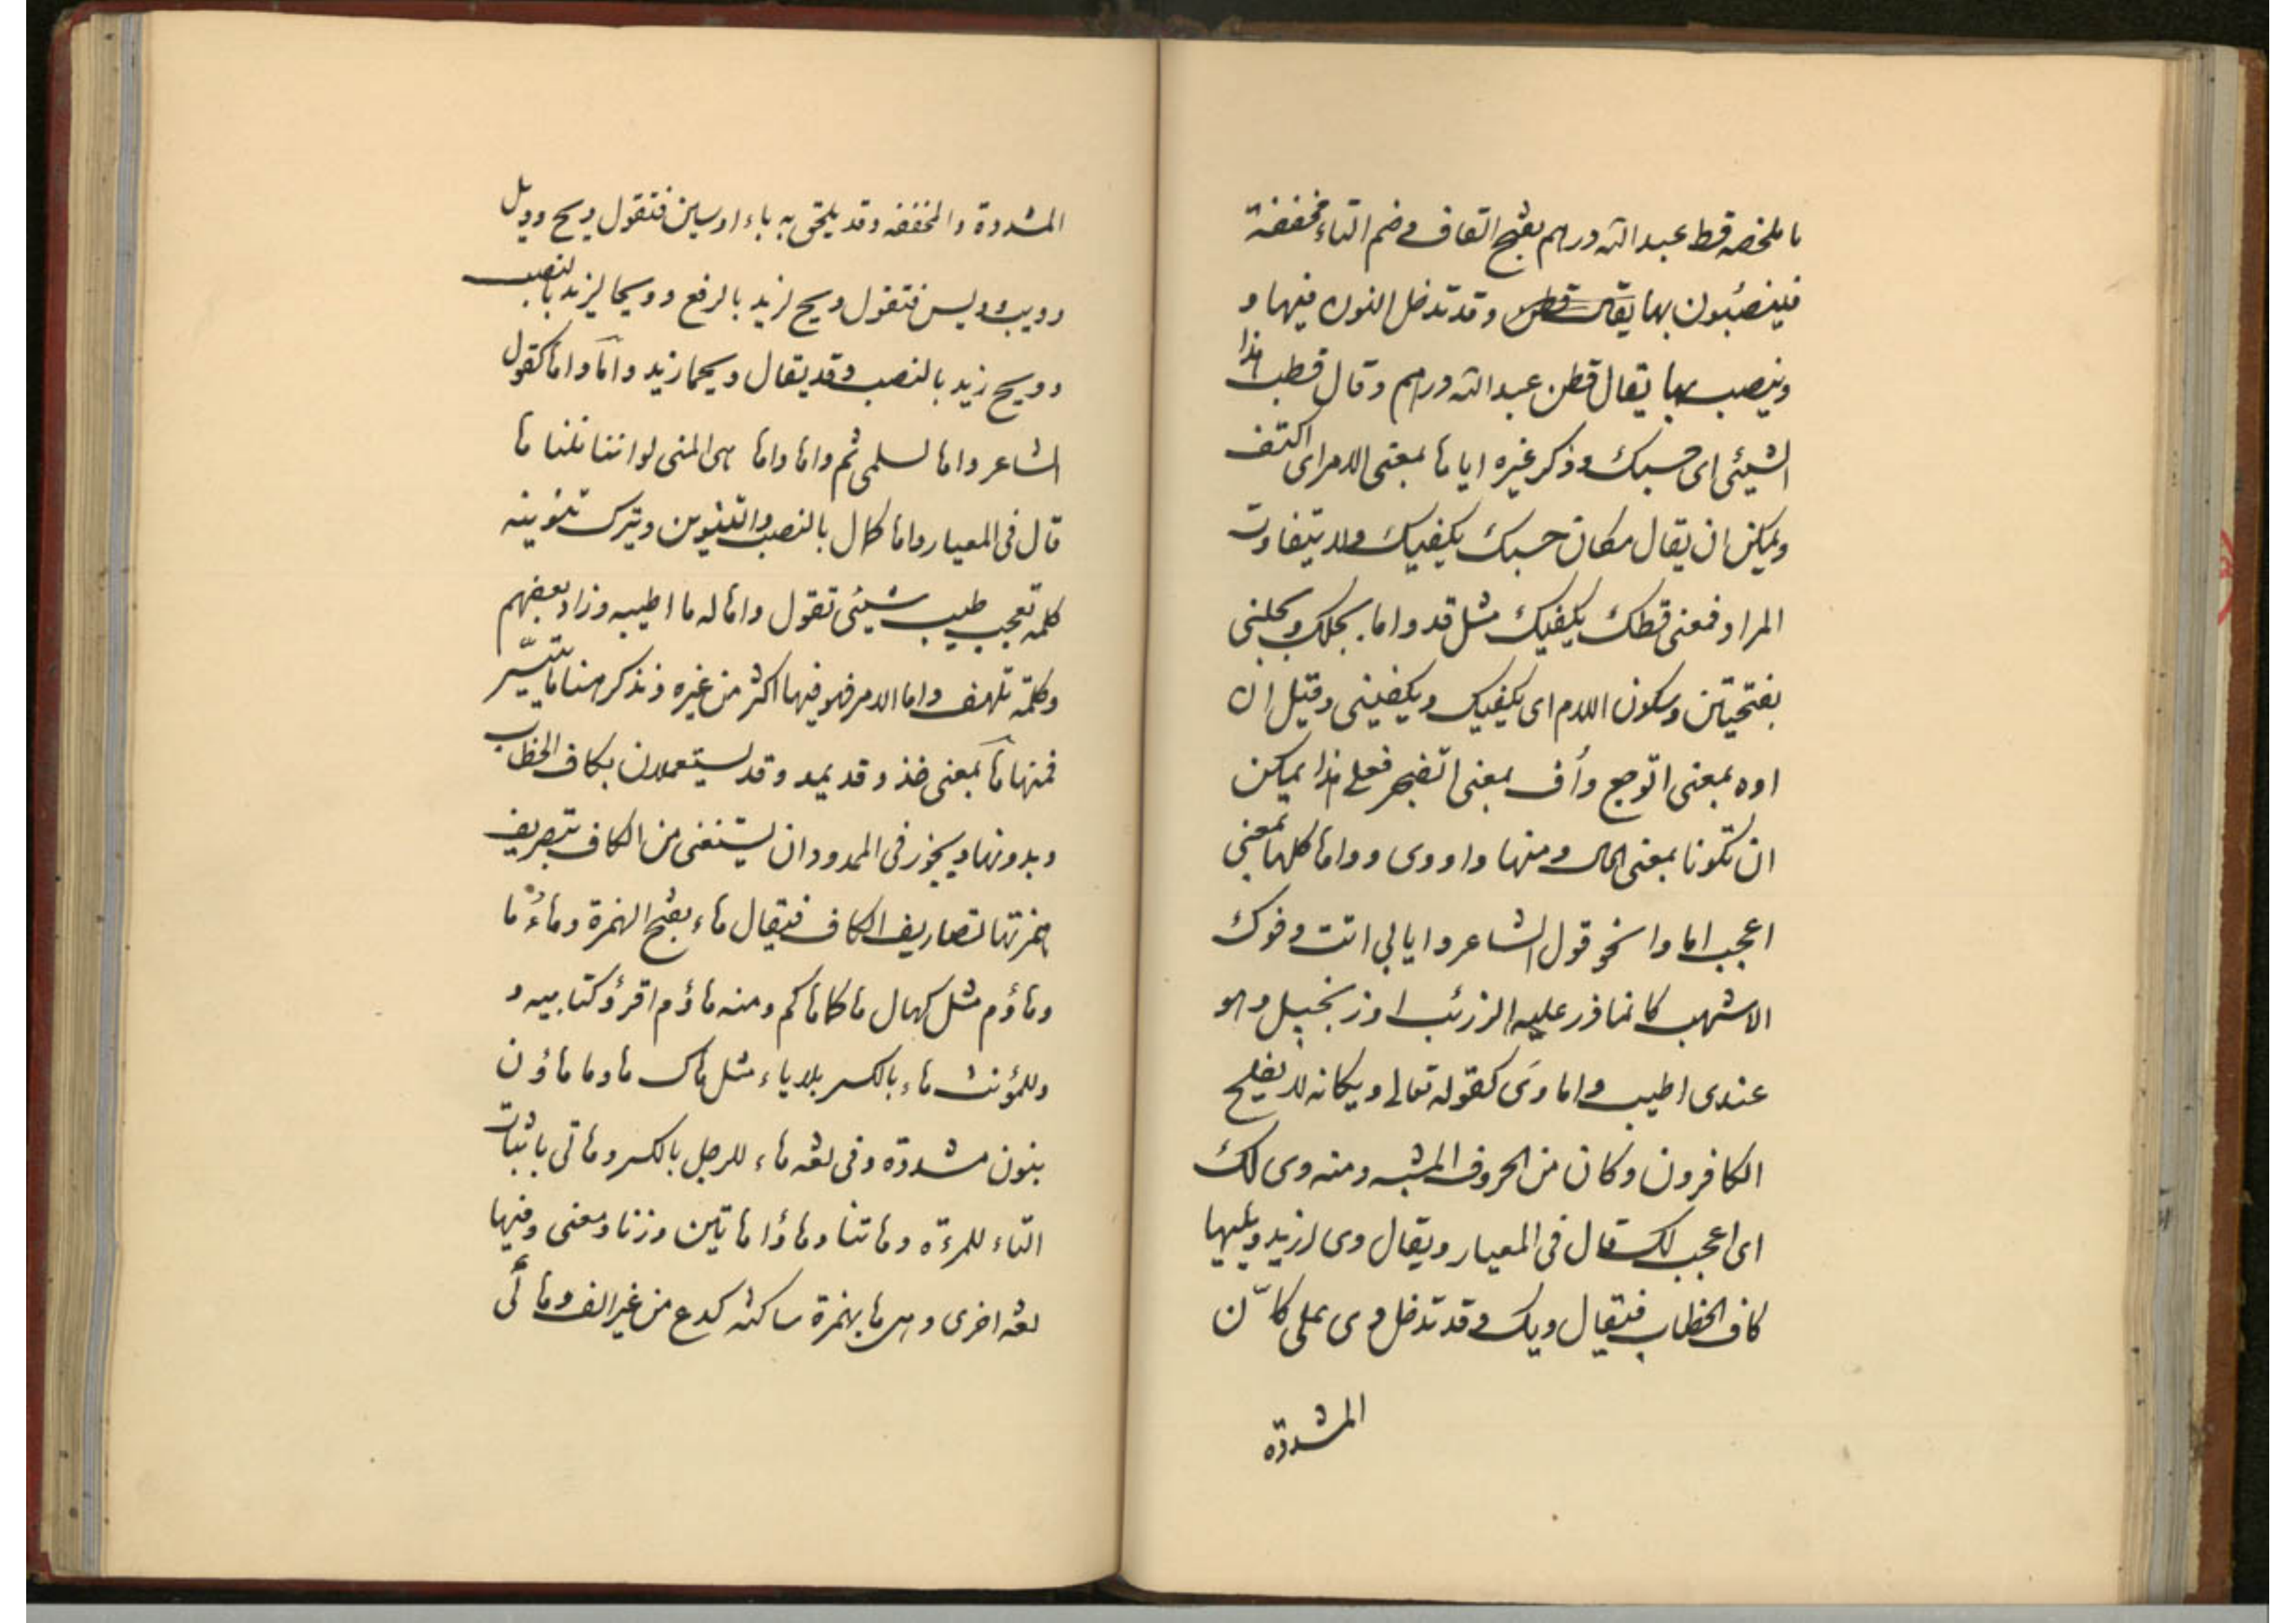 ما ملخصه قط عبد الله درهم بفتح القاف و ضم التاء مخففة
فينصبون بها يقال قطن وقد تدخل النون فيها و
وينصب بها يقال قطن عبد الله درهم وقال قطب هذا
الشيئى اى حسبك وذكر غيره ايا ها بمعنى الامر اى اكتف
ويمكن ان يقال مكان حسبك يكفيك ولا يتفاوت
المراد فمعنى قطك يكفيك مثل قد واما بجلك وبجلنى
بفتحتين وسكون اللام اى يكفيك ويكفينى وقيل ان
اوه بمعنى اتوجع وأف بمعنى اتضجر فعلى هذا يمكن
ان تكونا بمعنى الحال ومنها وا ووى وواها كلها بمعنى
اعجب اما وا نحو قول الشاعر وا يابى انت وفوك
الاشنب كانما ذر عليه الزرنب او زنجبيل وهو
عندى اطيب واما وَى كقوله تعالى ويكانه لا يفلح
الكافرون وكان من الحروف المشبه ومنه وى لك
اى اعجب لك قال فى المعيار ويقال وى لزيد ويليها
كاف الخطاب فيقال ويك وقد تدخل وى على كاّن
المشددة
المشددة والمخففه وقد يلحق به باء او سين فتقول ويح وويل
وويب وويس فتقول ويح لزيد بالرفع وويحا لزيد بالنصب
وويح زيد بالنصب وقد يقال ويحما زيد وامّا واها كقول
الشاعر واها لسلمى ثم واها واها هى المنى لو اننا نلنا ها
قال فى المعيار واها كمال بالنصب والتنوين وبترك تنوينه
كلمة تعجب طيب شيئى تقول واها له ما اطيبه وزاد بعضهم
وكلمة تلهف واما الامر فهو فيها اكثر من غيره ونذكر هنا ما تيسّر
فمنها هآ بمعنى خذ وقد يمد وقد يستعملان بكاف الخطاب
وبدونها ويجوز فى الممدود ان يستغنى من الكاف بتصريف
همزتها تصاريف الكاف فيقال هاء بفتح الهمزة وهاؤُما
وهاؤم مثل كهال هاكما هاكم ومنه هاؤم اقرؤ كتابيه و
وللمؤنث هاء بالكسر بلا ياء مثل هاك هاوما هاؤن
بنون مشددة وفى لغه هاء للرجل بالكسر وهاتى باثبات
التاء للمرءة وهاتنا وهاؤا هاتين وزنا ومعنى وفيها
لغه اخرى وهى ها بهمزة ساكنه كدع من غير الف وهائى